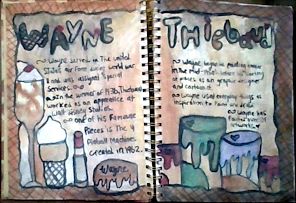 WAYNE
Wayne served in The united
States air Force during world war
II and was assigned special
Services.
in the summer of 1936, Thiebaud
worked as an apprentice at
Walt Disney Studios.
one of his Famouse
Pieces is The 4
Pinball Machines
created in 1962.
Wayne
Thiebaud
Wayne began painting
in the mid
artist as an graphic designer
and cartoonist.
Wayne used everyday things as
inspiration to Paint or draw.
Wayne has